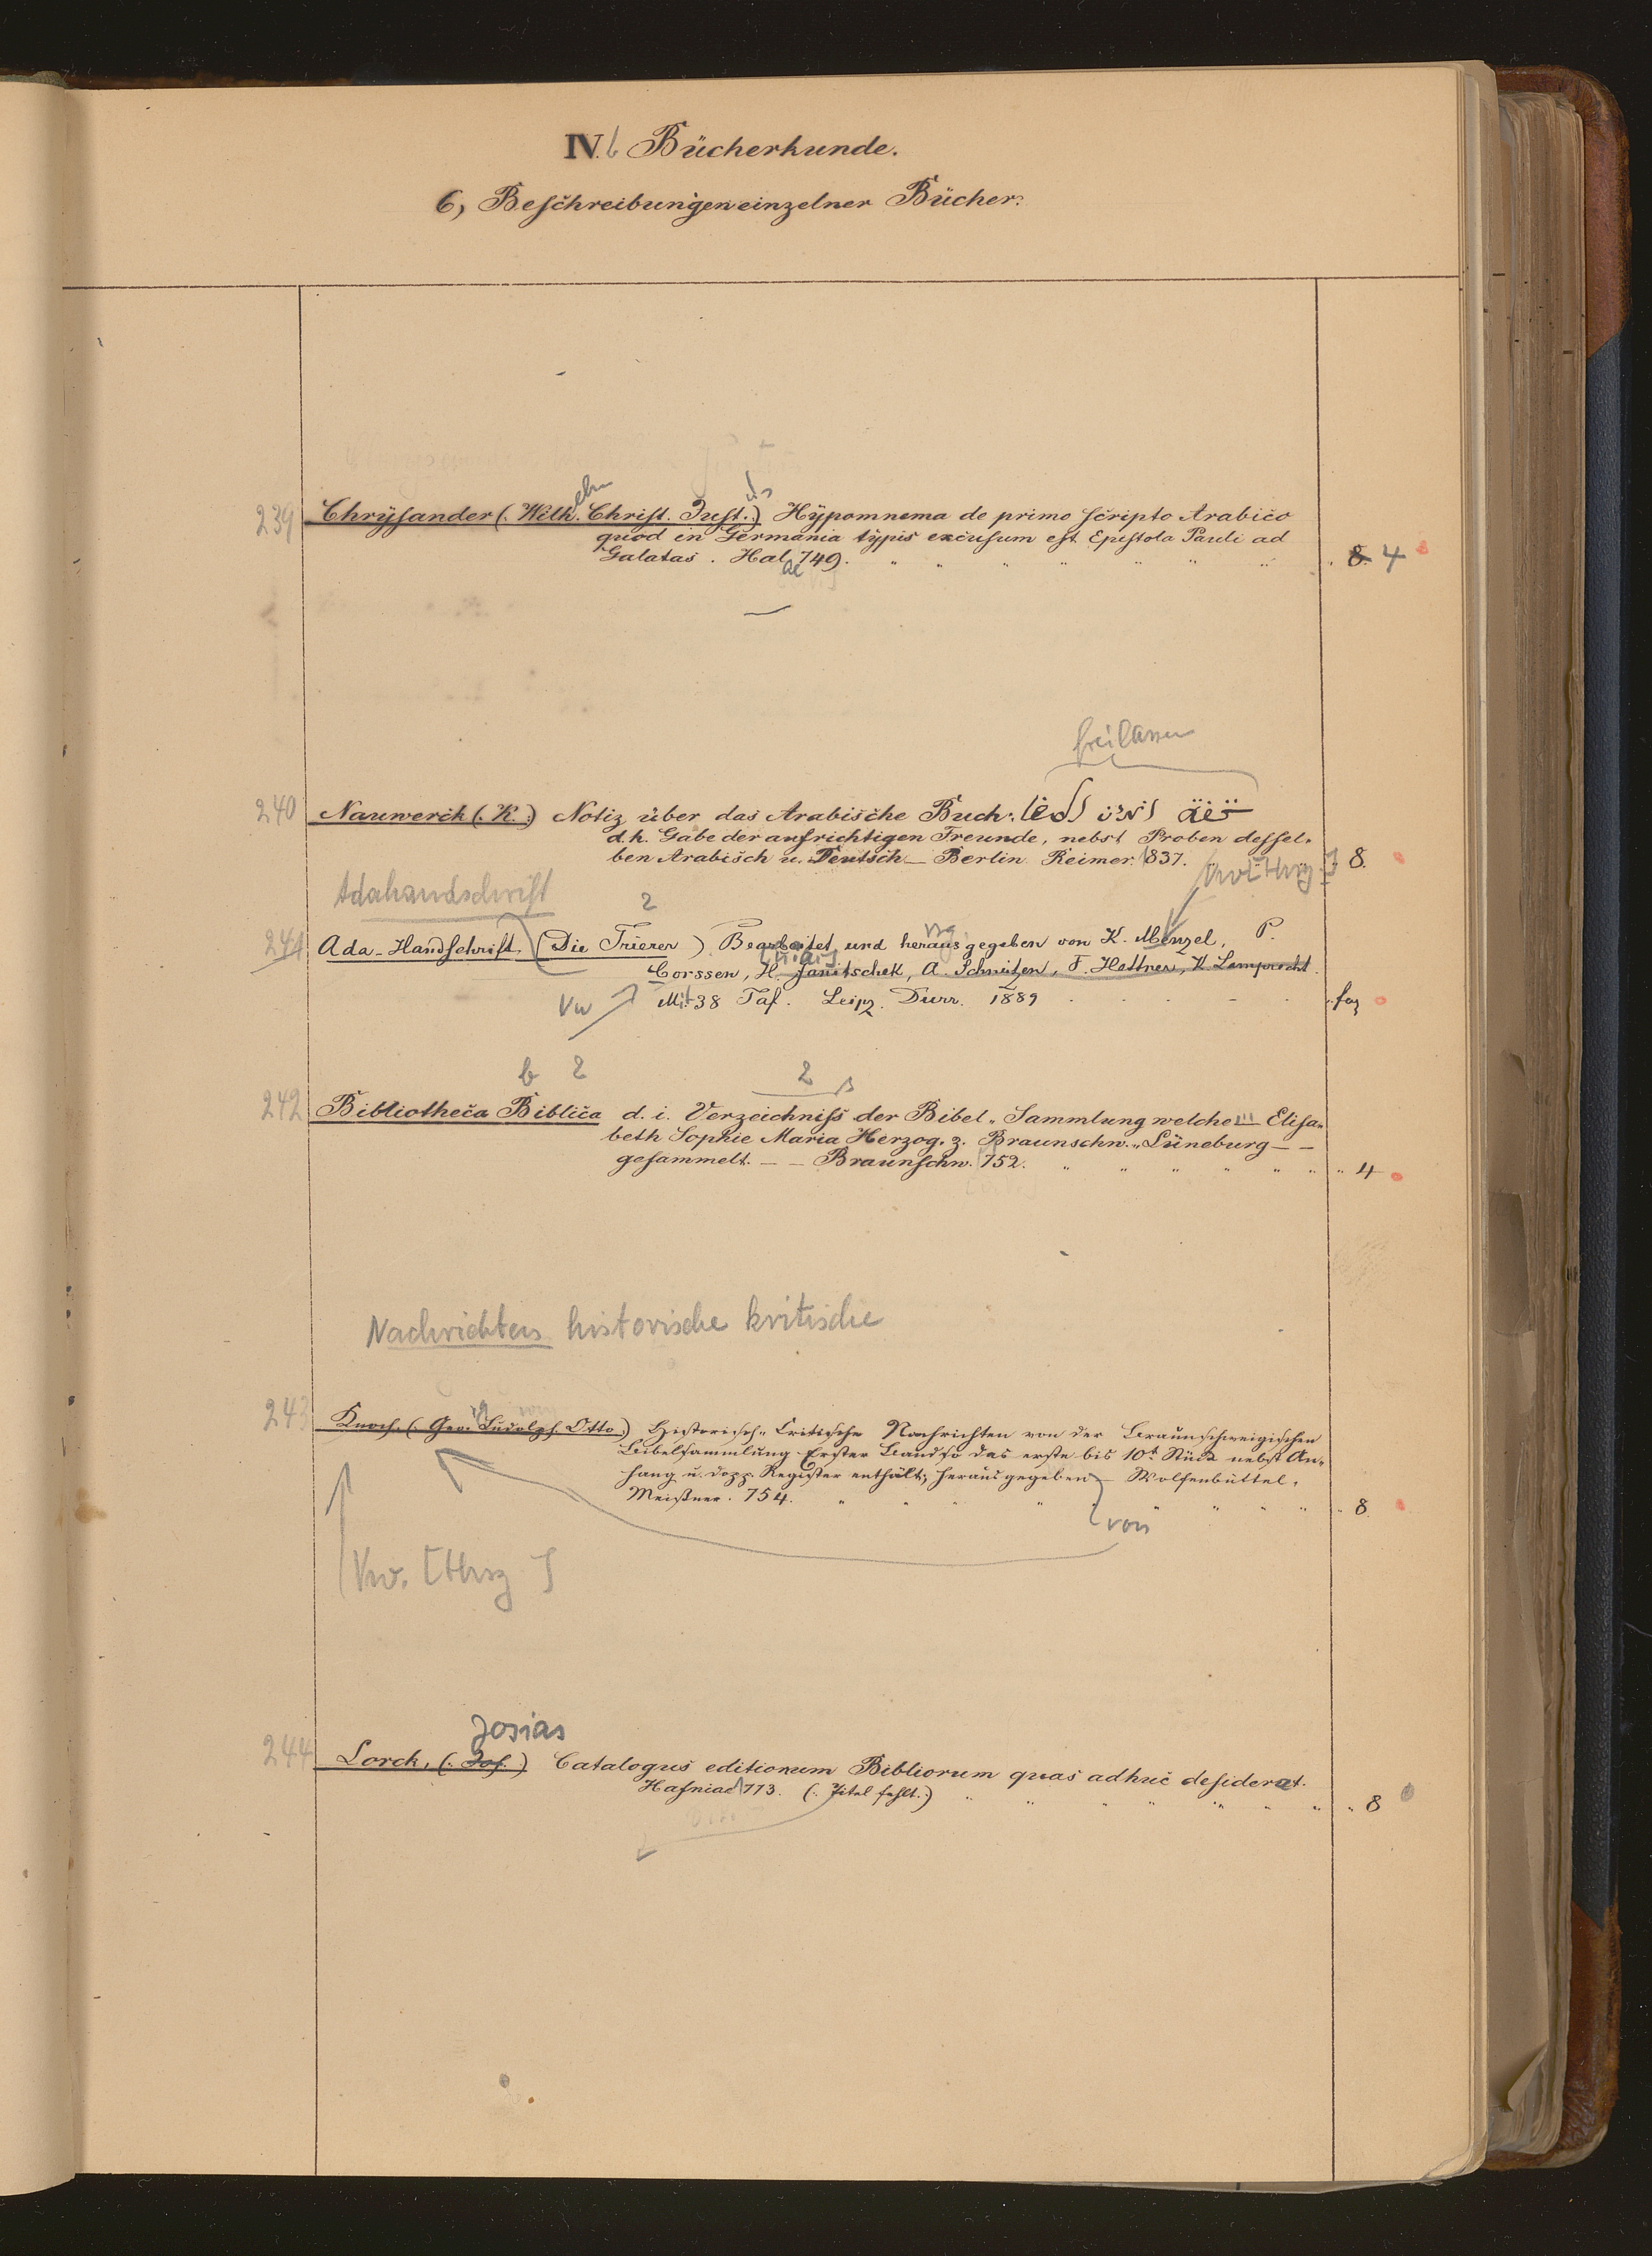 IV.b Bücherkunde.
6, Beschreibungen einzelner Bücher.
elm us
239 Chrysander (. Wilh. Christ. Just.:) Hypomnema de primo scripto Arabico
quod in Germania typis excusum est Epistola Pauli ad
Galatas. Hal. 749. 8. 4
ae
freilassen
240 Nauwerck (. K. :) Notiz über das Arabische Buch:
d.h. Gabe der aufrichtigen Freunde, nebst Proben dessel-
ben Arabisch u. Deutsch — Berlin Reimer. 837. 8.
Adahandschrift 2
241 Ada-Handschrift. (Die Trierer) Bearbeitet und herausgegeben von K. Menzel, P.
Corssen, H. Janitschek, A. Schnütgen, F. Hettner, K. Lamprecht.
Vw Mit 38 Taf. Leipz. Durr. 1889 fol
b 2 2 1
242 Bibliotheca Biblica d. i. Verzeichniss der Bibel-Sammlung welche ... Elisa-
beth Sophie Maria Herzog. z. Braunschw.-Lüneburg — —
gesammelt. — — Braunschw. 752. 4
Nachrichten historische kritische
243 Knoch. (. Geo. Ludolph Otto.) Historisch-Critische Nachrichten von der Braunschweigischen
Bibelsammlung Erster Band so das erste bis 10t Stück nebst An-
hang u. dopp. Register enthält, herausgegeben — Wolfenbüttel.
Meißner. 754. 8.
von
Vw. [Hrsg.]
Josias
244 Lorck, (. Jos. ) Catalogus editionum Bibliorum quas adhuc desiderat.
Hafniae 773. (. Titel fehlt.) 8